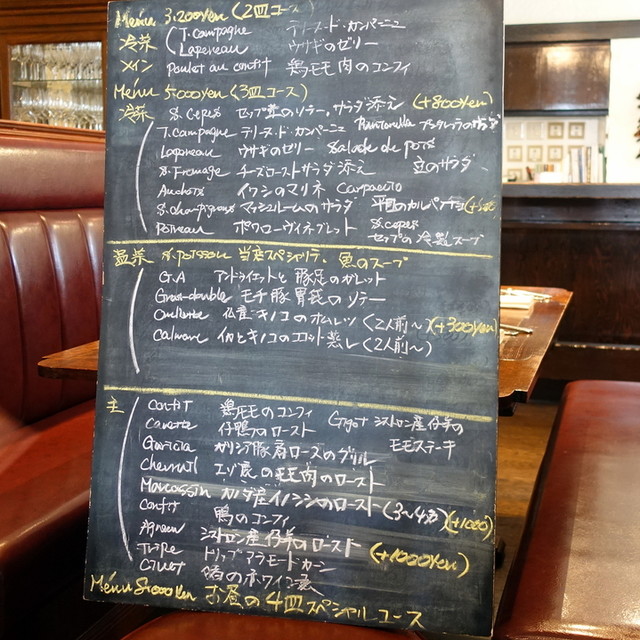 Menu 3.200yen (2皿コース)
冷菜 T. campagne テリーヌ・ド・カンパーニュ
Lapereau ウサギのゼリー
メイン Poulet au confit 鶏モモ肉のコンフィ
Menu 5000yen (3皿コース)
冷菜 S. Cepes セップ茸のソテー、サラダ添え (+800yen)
T. campagne テリーヌ・ド・カンパーニュ Puntarella
Lapereau ウサギのゼリー Salade de pois
S. Fromage チーズローストサラダ添え 豆のサラダ
Anchois イワシのマリネ Carpaccio
S. champignons マッシュルームのサラダ 平目のカルパッチョ
Poireau ポワローヴィネグレット S. cepes
セップの冷製スープ
温菜 S. poisson 当店スペシャリテ、魚のスープ
G.A アンドゥイエットと豚足のガレット
Gras-double モチ豚胃袋のソテー
Omelette 仏産キノコのオムレツ (2人前〜) (+300yen)
Calmar イカとキノコのココット蒸し (2人前〜)
主 Confit 鶏モモのコンフィ Gigot シストロン産仔羊の
Canette 仔鴨のロースト モモステーキ
Garicia ガリシア豚肩ロースのグリル
Chevreuil エゾ鹿のモモ肉のロースト
Marcassin カナダ産イノシシのロースト (3〜4名) (+1000)
Confit 鴨のコンフィ
Agneau シストロン産仔羊のロースト (+1000yen)
Tripe トリップアラモードカーン
Civet 猪の赤ワイン煮
Menu 8.000yen お昼の4皿スペシャルコース